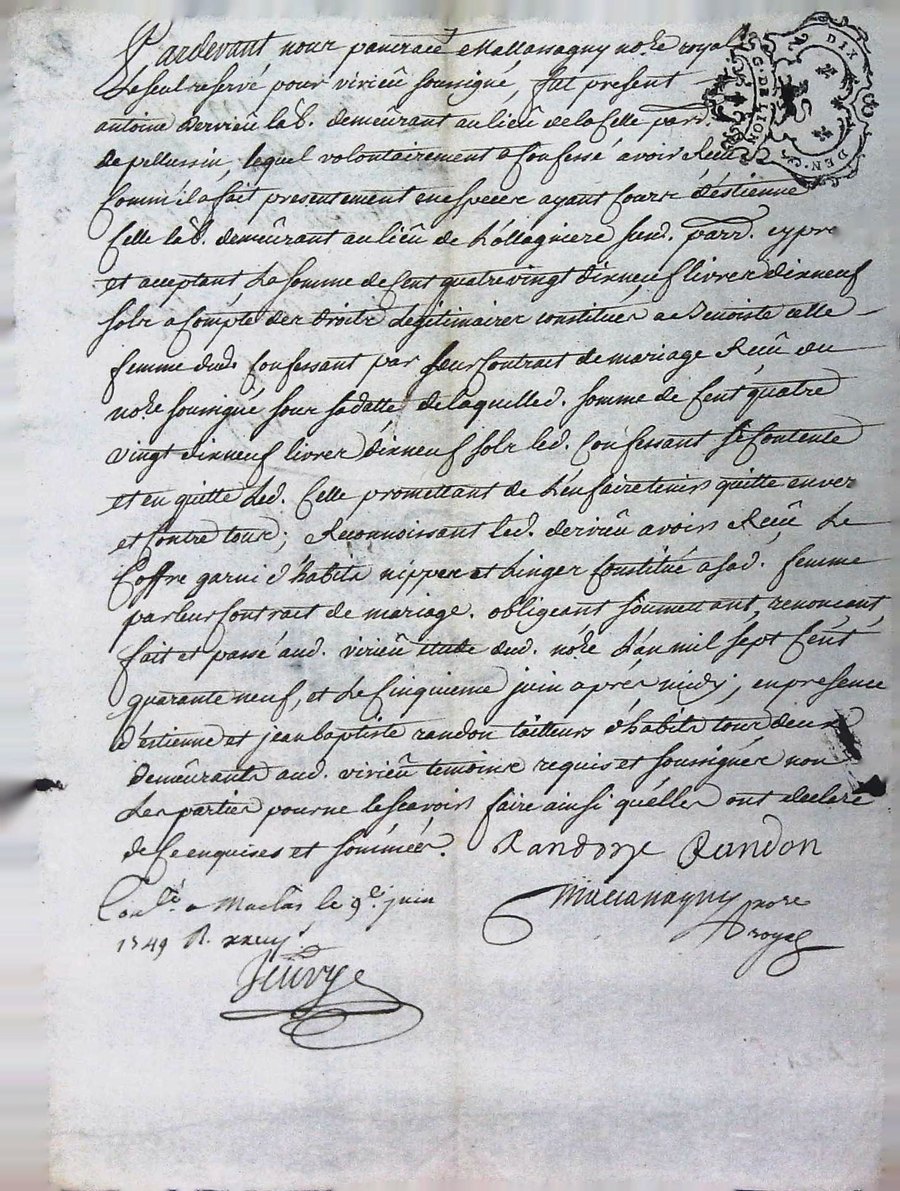 Pardevant nous pancrace Mallassagny no.re royal
Le seul reservé pour virieû soussigné fut present
antoine Dervieû lab. demeûrant au lieû de la Celle parr.
de pellussin, lequel volontairement a Confessé avoir Reçeû
Comm'il a fait presentement en especes ayant Cours d'éstienne
Celle lab. demeûrant au lieû de L'ollagniere susd. parr. cy pnt
et acceptant La somme de Cent quatre vingt dixneuf livres dixneuf
sols a Compte des droits Légitimaires constitués a Benoiste celle
femme dud. Confessant par leur Contrat de mariage Reçû du
no.re soussigné sous sa datte, de laquelle d. somme de Cent quatre
vingt dixneuf livres dixneuf sols led. Confessant se Contente
et en quitte led. Celle promettant de L'en faire tenir quitte envers
et Contre tous; Reconnoissant led. dervieû avoir Reçeû Le
Coffre garni d'habits nippes et Linges Constitué a sad. femme
par leur Contrat de mariage. obligeant soumettant, renonçant
fait et passé aud. virieû étude dud. no.re L'an mil sept Cent
quarante neuf, et Le Cinquieme juin après midy; en presence
d'éstienne et jean baptiste randon tailleurs d'habits tous deux
Demeûrants aud. virieû temoins requis et soussignés non
Les parties pour ne le scavoir faire ainsi qu'elles ont declaré
de Ce enquises et sommées. Randon Randon
Con.lé a Maclas le 9.e juin Mallassagny no.re
1749 R. royal
G.DE LYON
DIX
DEN.